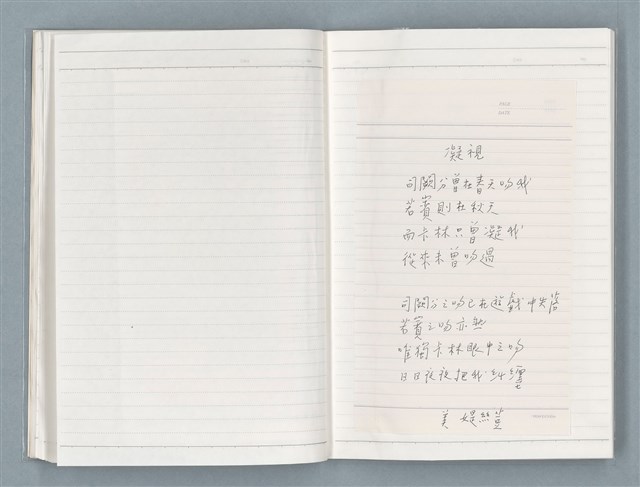 凝視
司闕分曾在春天吻我
若賓則在秋天
而卡林只曾凝我
從來未曾吻過
司闕分之吻已在遊戲中失落
若賓之吻亦然
唯獨卡林眼中之吻
日日夜夜把我糾纏
美 媞絲黛